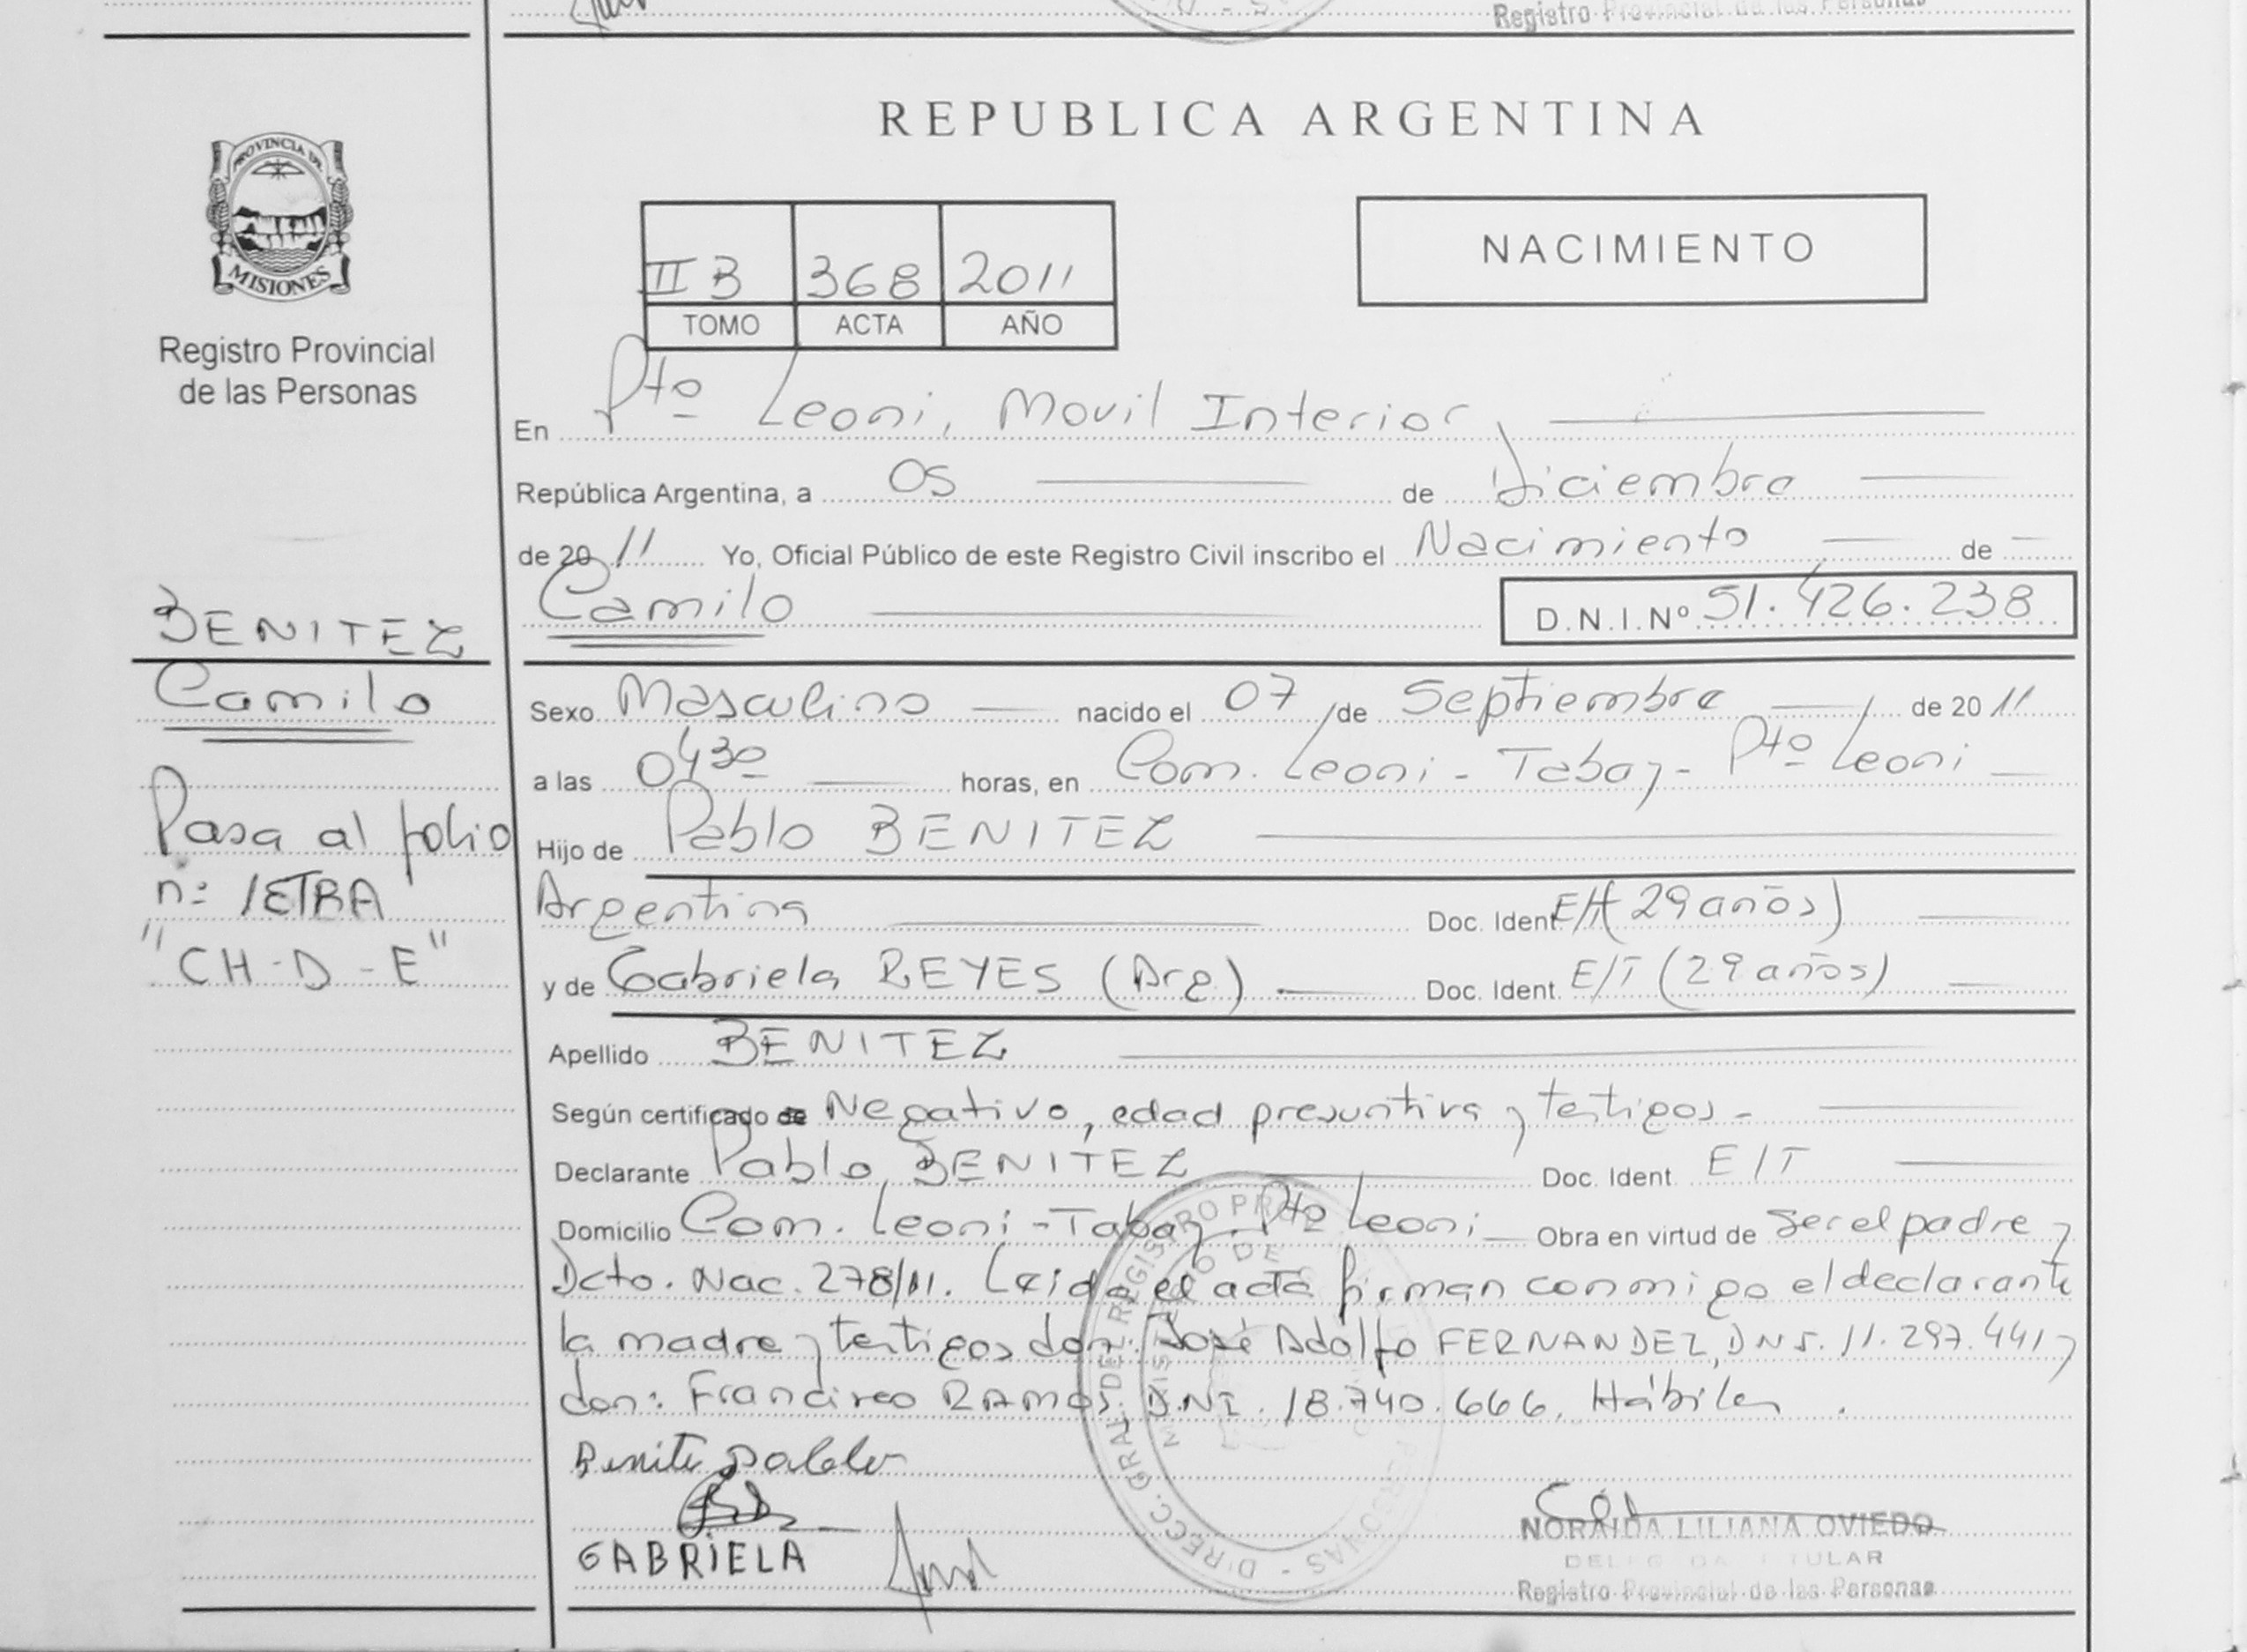 Registro Provincial de las Personas
REPUBLICA ARGENTINA
PROVINCIA DE
MISIONES
Registro Provincial
de las Personas
II B 368 2011
TOMO ACTA AÑO
NACIMIENTO
En Pto Leoni, Movil Interior
República Argentina, a 05 de Diciembre
de 2011 Yo, Oficial Público de este Registro Civil inscribo el Nacimiento de
Camilo D.N.I.Nº 51.426.238
BENITEZ
Camilo
Pasa al folio
n: LETRA
"CH-D-E"
Sexo Masculino nacido el 07 de Septiembre de 2011
a las 0430 horas, en Com. Leoni - Tabay - Pto Leoni
Hijo de Pablo BENITEZ
Argentina Doc. Ident. E/T (29 años)
y de Gabriela REYES (Arg) Doc. Ident. E/T (29 años)
Apellido BENITEZ
Según certificado de Negativo, edad presuntiva y testigos.-
Declarante Pablo BENITEZ Doc. Ident. E/T
Domicilio Com. Leoni - Tabay - Pto Leoni Obra en virtud de ser el padre y
Dcto. Nac. 278/11. Leida el acta firman conmigo el declarante
la madre y testigos don: José Adolfo FERNANDEZ, DNI. 11.297.441 y
don: Francisco RAMOS. D.NI. 18.740.666. Hábiles.
Benite Pablo
GABRIELA
DIRECC. GRAL. DEL REGISTRO PERSONAS
NORAIDA LILIANA OVIEDO
TITULAR
Registro Provincial de las Personas